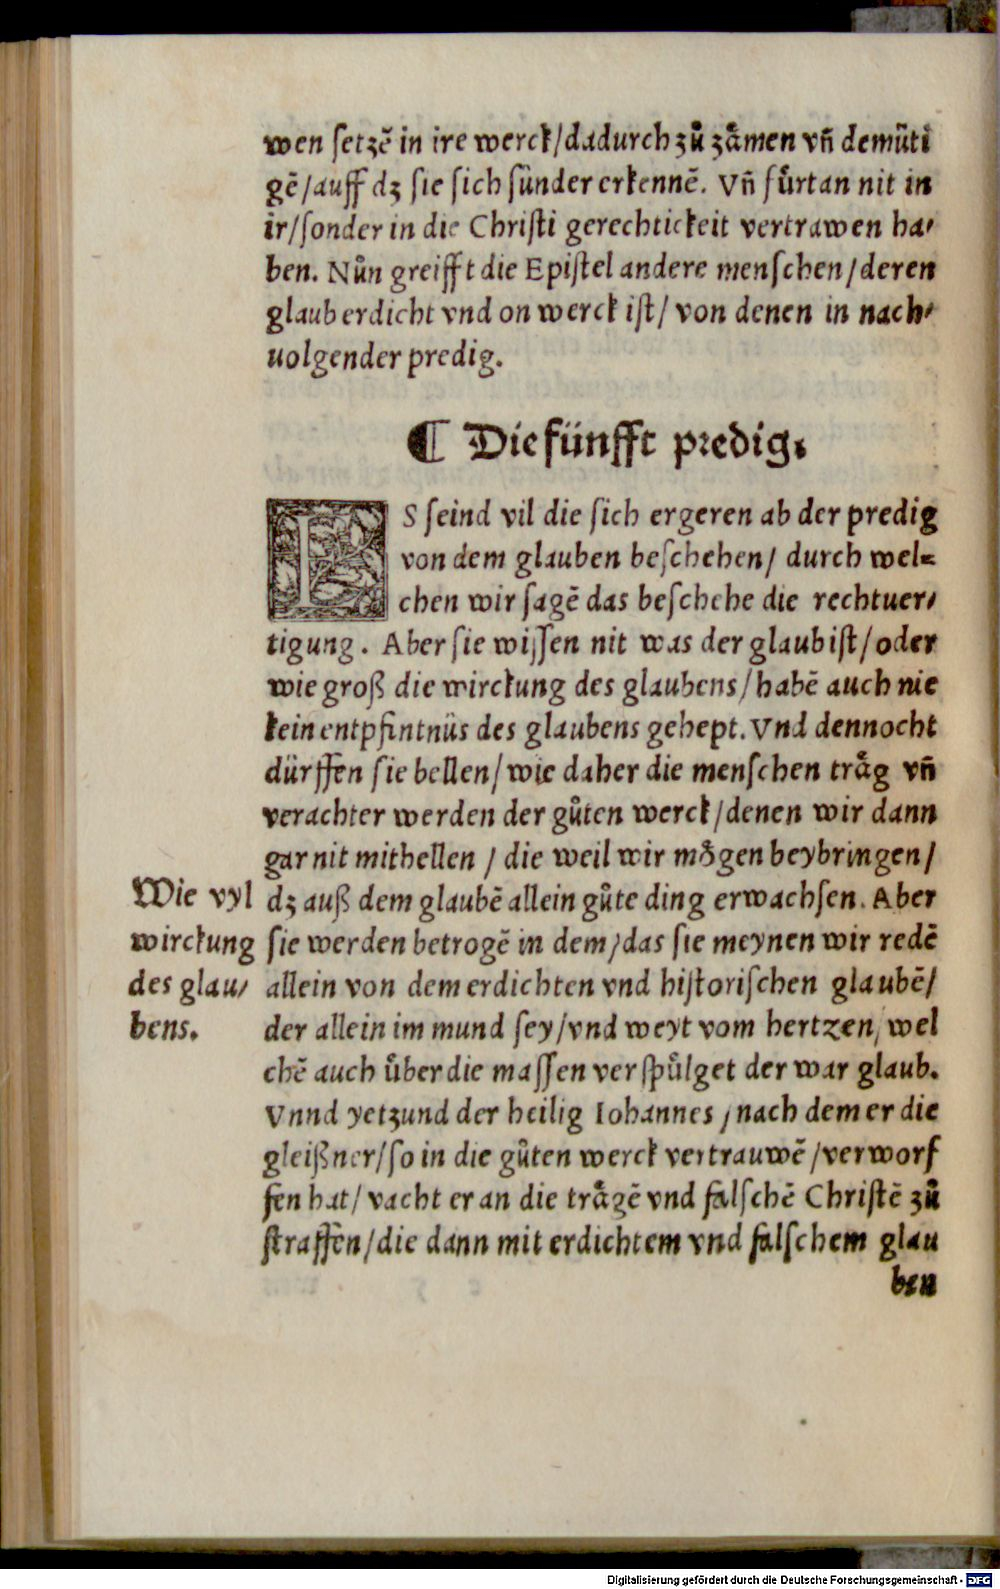 wen ſetzē in ire werck/dadurch zů zåmen vñ demůti
gē/auff dz ſie ſich ſünder erkennē. Vñ fůrtan nit in
ir/ſonder in die Chriſti gerechtickeit vertrawen ha⸗
ben. Nůn greifft die Epiſtel andere menſchen/deren
glaub erdicht vnd on werck iſt/ von denen in nach⸗
uolgender predig.
¶ Die fünfft predig.
ES ſeind vil die ſich ergeren ab der predig
von dem glauben beſchehen/ durch wel⸗
chen wir ſagē das beſchehe die rechtuer⸗
tigung. Aber ſie wiſſen nit was der glaub iſt/oder
wie groß die wirckung des glaubens/habē auch nie
kein entpfintnüs des glaubens gehept. Vnd dennocht
dürffen ſie bellen/wie daher die menſchen tråg vñ
verachter werden der gůten werck/denen wir dann
gar nit mithellen / die weil wir mögen beybringen/
dz auß dem glaubē allein gůte ding erwachſen. Aber
ſie werden betrogē in dem/das ſie meynen wir redē
allein von dem erdichten vnd hiſtoriſchen glaubē/
der allein im mund ſey/vnd weyt vom hertzen/wel
chē auch ůber die maſſen verſpůlget der war glaub.
Vnnd yetzund der heilig Iohannes/nach dem er die
gleißner/ſo in die gůten werck vertrauwē/verworf
fen hat/vacht er an die trågē vnd falſchē Chriſtē zů
ſtraffen/die dann mit erdichtem vnd falſchem glau
ben
Wie vyl
wirckung
des glau⸗
bens.
Digitalisierung gefördert durch die Deutsche Forschungsgemeinschaft - DFG